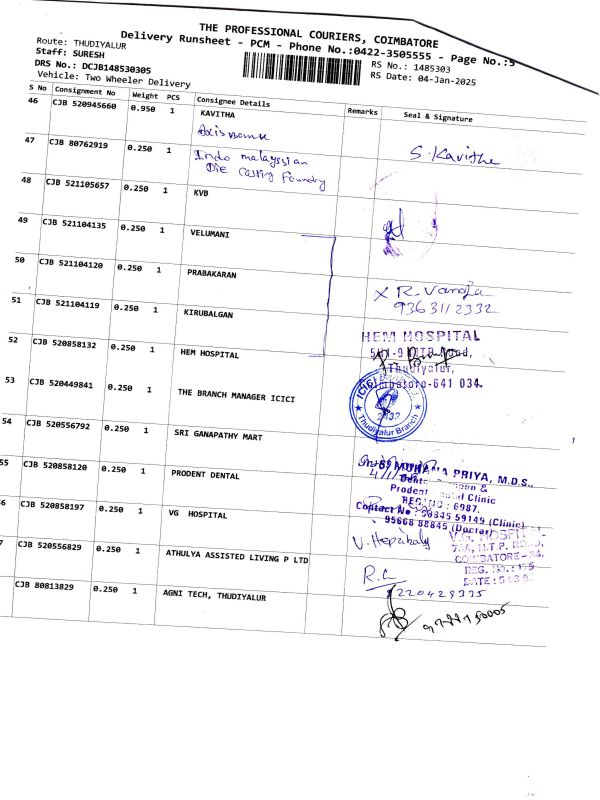 THE PROFESSIONAL COURIERS, COIMBATORE
Delivery Runsheet - PCM - Phone No.:0422-3505555 - Page No.:5
Route: THUDIYALUR
Staff: SURESH
RS No.: 1485303
DRS No.: DCJB148530305
RS Date: 04-Jan-2025
Vehicle: Two Wheeler Delivery
S No Consignment No Weight PCS Consignee Details Remarks Seal & Signature
46 CJB 520945660 0.950 1 KAVITHA
Axis Bank
S. Kavitha
47 CJB 80762919 0.250 1 Indo malayssian
Die Casting Foundry
48 CJB 521105657 0.250 1 KVB
49 CJB 521104135 0.250 1 VELUMANI
50 CJB 521104120 0.250 1 PRABAKARAN
X R. Vanaja
9363112332
51 CJB 521104119 0.250 1 KIRUBALGAN
52 CJB 520858132 0.250 1 HEM HOSPITAL
HEM HOSPITAL
Thudiyalur,
641 034.
53 CJB 520449841 0.250 1 THE BRANCH MANAGER ICICI
ICICI
Thudiyalur Branch
54 CJB 520556792 0.250 1 SRI GANAPATHY MART
55 CJB 520858120 0.250 1 PRODENT DENTAL
PRIYA, M.D.S.,
Prodent Clinic
REG. NO : 6987.
Contact No : 98845 59149 (Clinic)
95668 88845 (Doctor)
6 CJB 520858197 0.250 1 VG HOSPITAL
V.G. HOSPITAL
M.T.P. ROAD,
COIMBATORE
REG. NO.
DATE :
7 CJB 520556829 0.250 1 ATHULYA ASSISTED LIVING P LTD
R.C
8220429335
CJB 80813829 0.250 1 AGNI TECH, THUDIYALUR